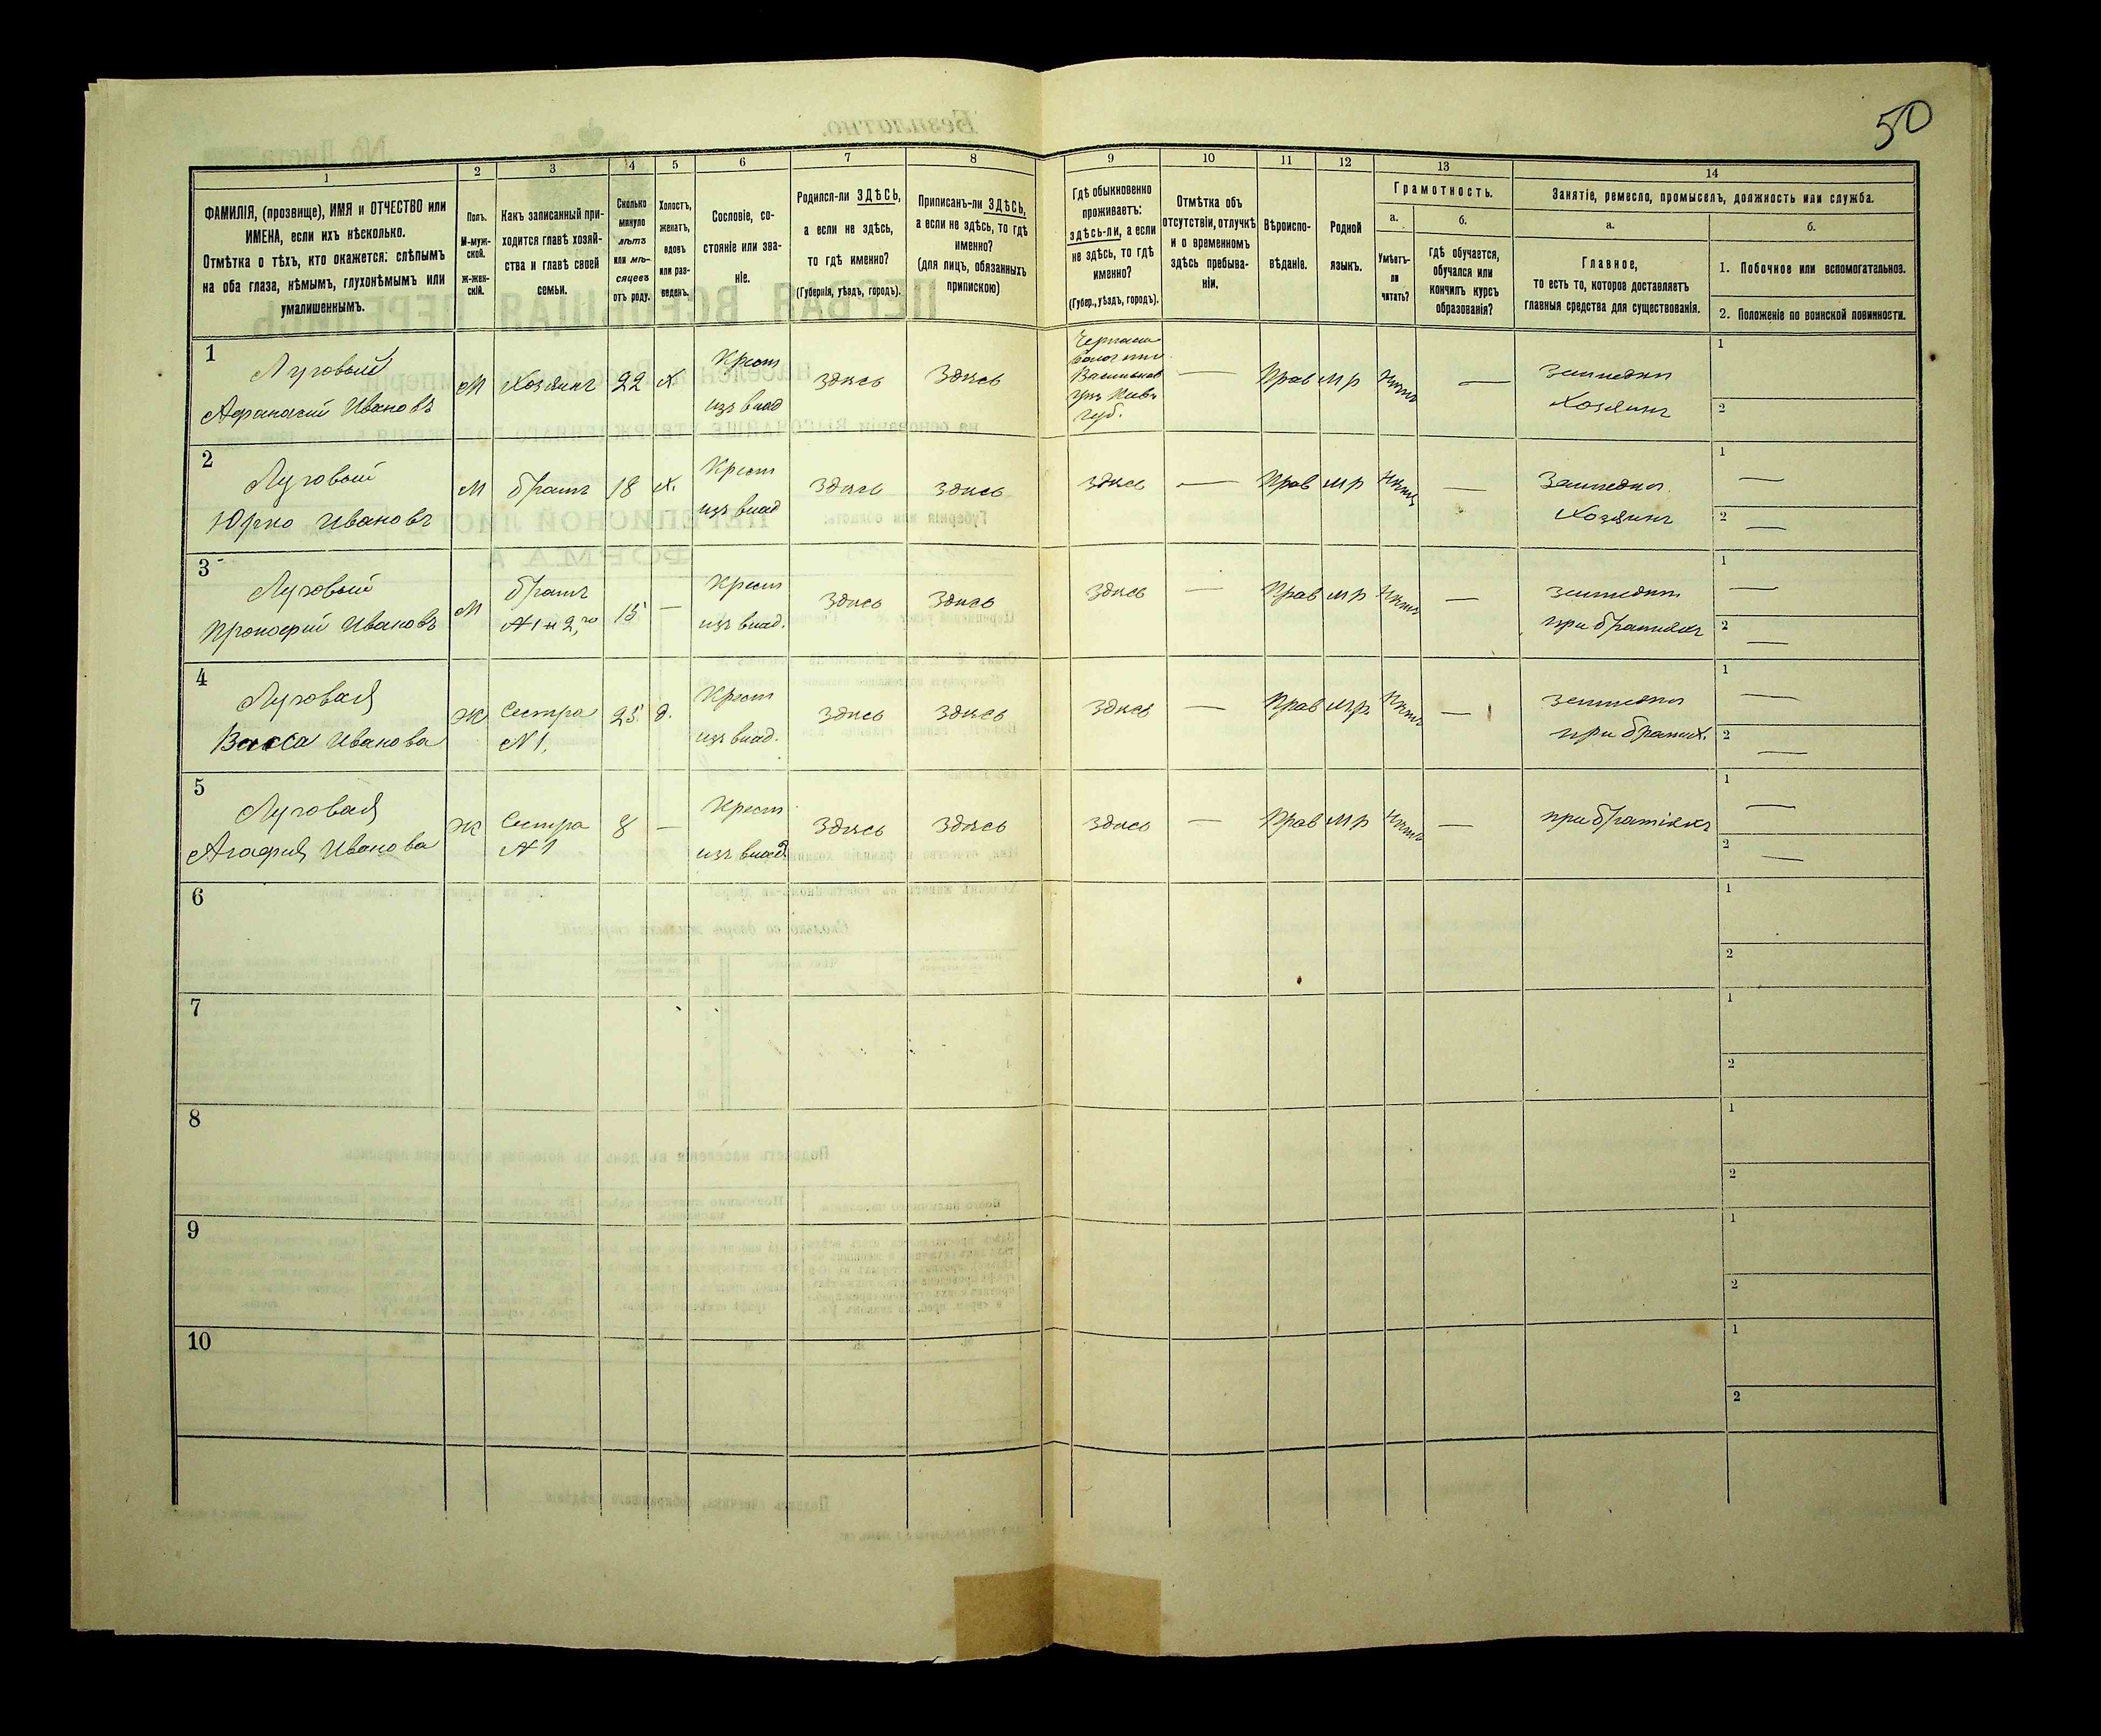 50
1
2
3
4
5
6
7
8
9
10
11
12
13
14
ФАМИЛІЯ, (прозвище), ИМЯ и ОТЧЕСТВО или
ИМЕНА, если ихъ нѣсколько.
Отмѣтка о тѣхъ, кто окажется: слѣпымъ
на оба глаза, нѣмымъ, глухонѣмымъ или
умалишеннымъ.
Полъ.
М-муж-
ской.
Ж-жен-
скій.
Какъ записанный при-
ходится главѣ хозяй-
ства и главѣ своей
семьи.
Сколько
минуло
лѣтъ
или мѣ-
сяцевъ
отъ роду.
Холостъ,
женатъ,
вдовъ
или раз-
веденъ.
Сословіе, со-
стояніе или зва-
ніе.
Родился-ли ЗДѢСЬ,
а если не здѣсь,
то гдѣ именно?
(Губернія, уѣздъ, городъ).
Приписанъ-ли ЗДѢСЬ,
а если не здѣсь, то гдѣ
именно?
(для лицъ, обязанныхъ
припискою)
Гдѣ обыкновенно
проживаетъ:
здѣсь-ли, а если
не здѣсь, то гдѣ
именно?
(Губер., уѣздъ, городъ).
Отмѣтка объ
отсутствіи, отлучкѣ
и о временномъ
здѣсь пребыва-
ніи.
Вѣроиспо-
вѣданіе.
Родной
языкъ.
Грамотность.
а.
Умѣетъ-
ли
читать?
б.
гдѣ обучается,
обучался или
кончилъ курсъ
образованія?
Занятіе, ремесло, промыселъ, должность или служба.
а.
Главное,
то есть то, которое доставляетъ
главныя средства для существованія.
б.
1. Побочное или вспомогательное.
2. Положеніе по воинской повинности.
1
Луговый
Афанасий Ивановъ
М
Хозяинъ
22
Х
Крест
изъ влад
Здѣсь
Здѣсь
Губ.
—
Прав
мр
Нѣтъ
—
Хозяинъ
1
2
2
Луговый
Юрко Ивановъ
М
братъ
18
Х.
Крест
изъ влад
Здѣсь
здѣсь
здѣсь
—
Прав
мр
Нѣтъ
—
Хозяинъ
1 —
2 —
3
Луговый
Прокофий Ивановъ
М
братъ
№ 1 и 2го
15
—
Крест
изъ влад.
Здѣсь
Здѣсь
Здѣсь
—
Прав
мр
Нѣтъ
—
при братьяхъ
1 —
2 —
4
Луговая
Васса Иванова
Ж
Сестра
№ 1.
25.
д.
Крест
изъ влад.
Здѣсь
Здѣсь
Здѣсь
—
Прав
мр.
Нѣтъ
—
при братьях.
1 —
2 —
5
Луговая
Агафия Иванова
Ж
Сестра
№ 1
8
—
Крест
изъ влад
Здѣсь
Здѣсь
Здѣсь
—
Прав
мр
Нѣтъ
—
при братіяхъ
1 —
2 —
6
1
2
7
1
2
8
1
2
9
1
2
10
1
2